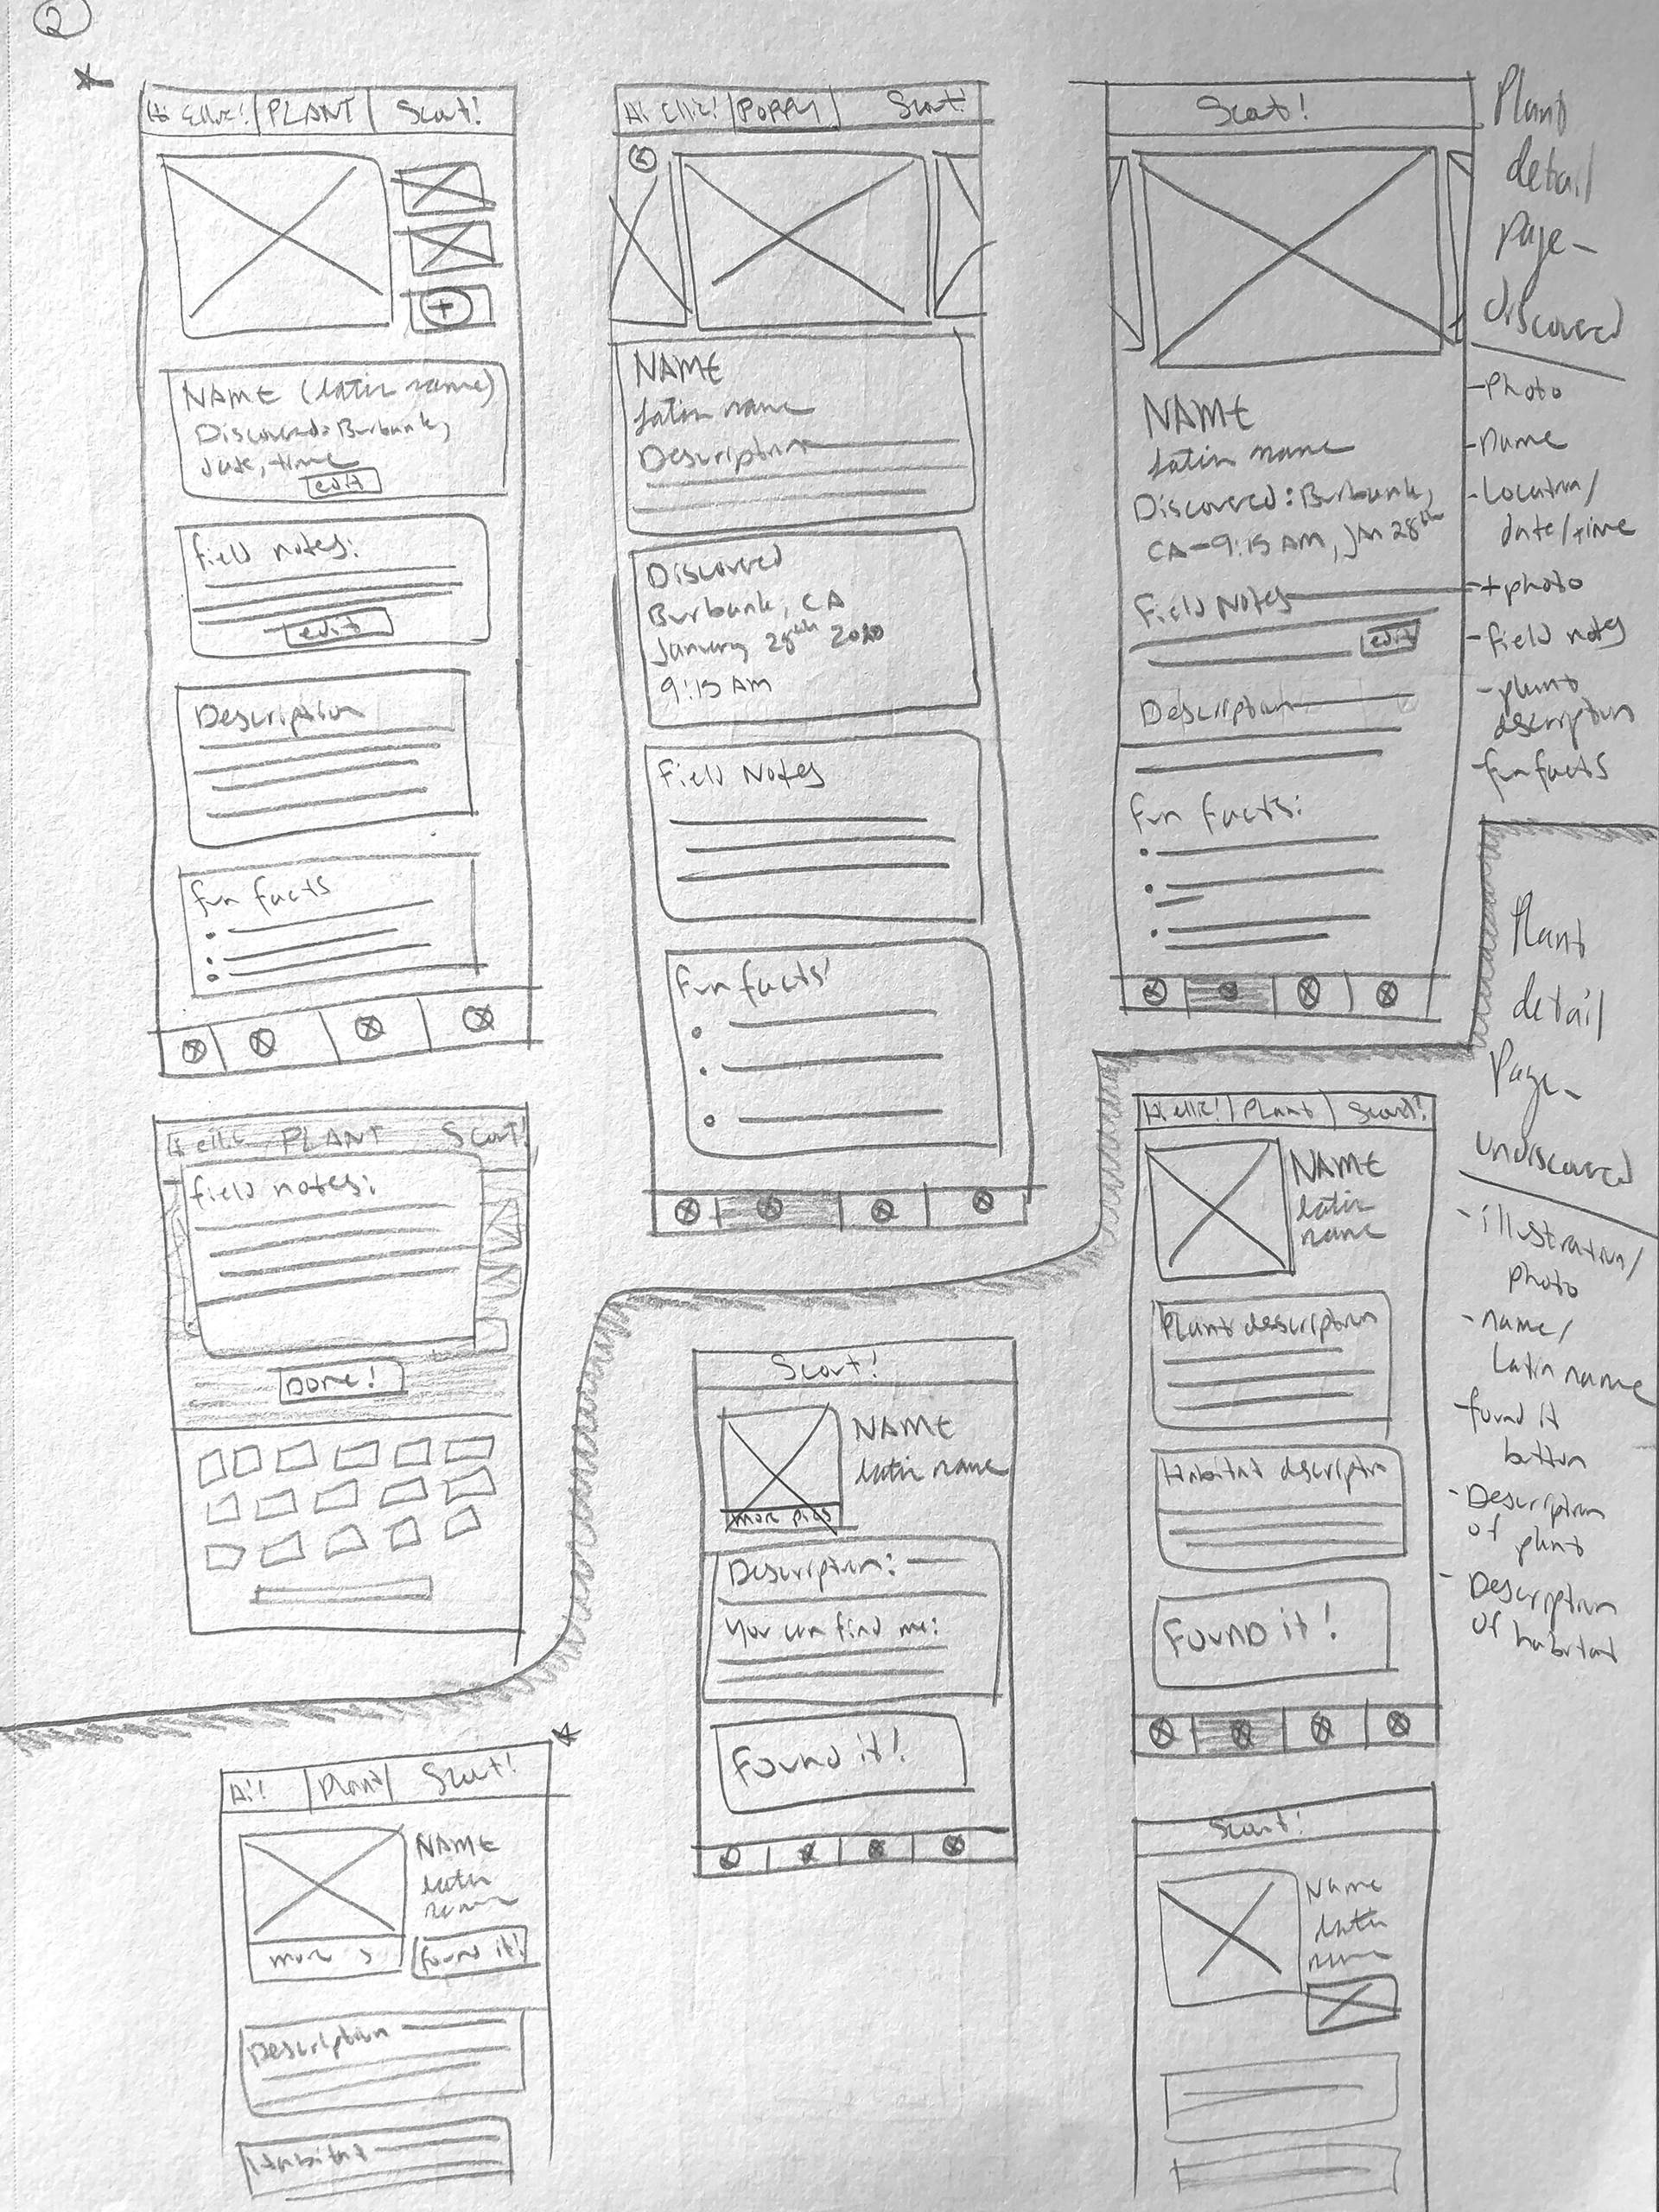 2
Hi Ellie! PLANT Scout!
NAME (latin name)
Discovered: Burbank,
date, time
edit
field notes:
edit
Description
fun facts
Hi Ellie! POPPY Scout!
NAME
latin name
Description
Discovered
Burbank, CA
January 28th 2020
9:15 AM
Field Notes
Fun facts!
Scout!
NAME
Latin name
Discovered: Burbank,
CA - 9:15 AM, JAN 28th
Field Notes
edit
Description
Fun facts:
Plant
detail
page-
discovered
- Photo
- Name
- Location/
date/time
- + photo
- field notes
- plant
description
- fun facts
Hi ellie PLANT Scout!
field notes:
DONE!
Plant
detail
Page-
undiscovered
- illustration/
photo
- name/
Latin name
- found it
button
- Description
of plant
- Description
of habitat
Hi ellie! Plant Scout!
NAME
latin
name
Plant description
Habitat description
FOUND it!
Scout!
NAME
latin name
more pics
Description:
You can find me:
FOUND it!
Hi! Plant Scout!
NAME
latin
name
more >
found it!
Description
Habitat
Scout!
Name
latin
name